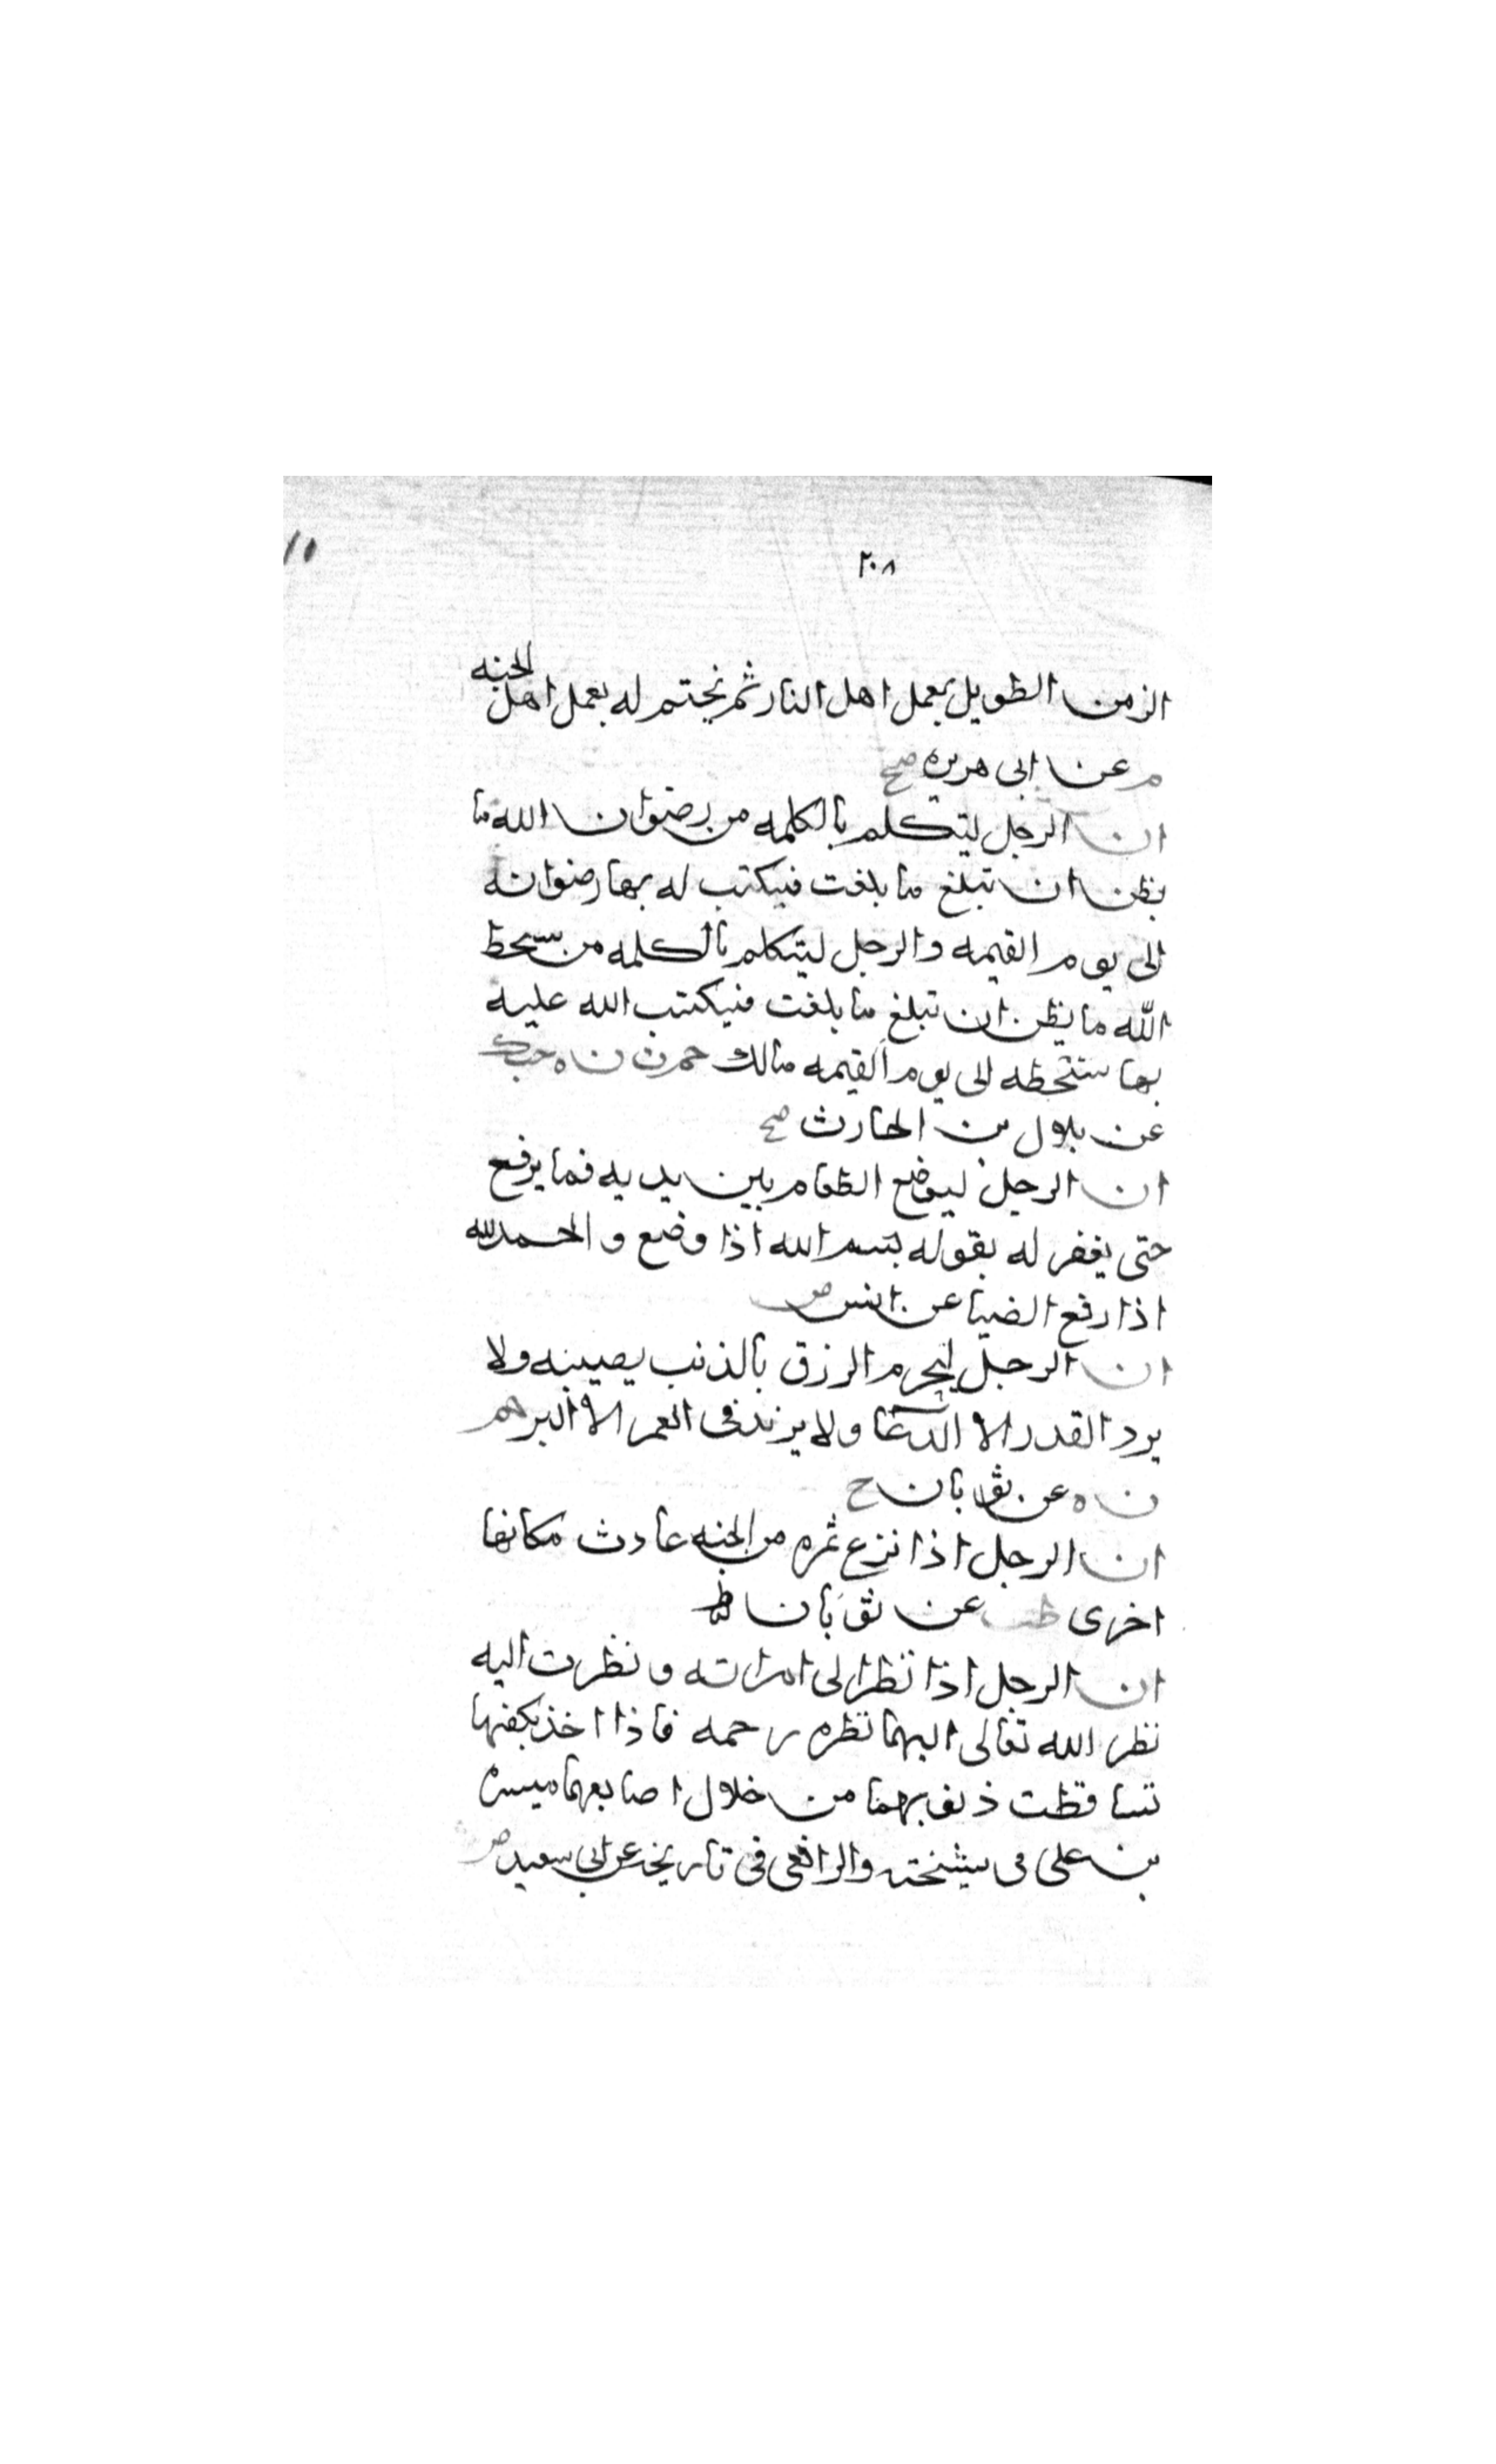 ٢٠٨
الزمن الطويل بعمل اهل النار ثم يختم له بعمل اهل الجنه
م عن ابى هريره صح
ان الرجل ليتكلم بالكلمه من رضوان الله ما
يظن ان تبلغ ما بلغت فيكتب له بها رضوانه
الى يوم القيمه والرجل ليتكلم بالكلمه من سخط
الله ما يظن ان تبلغ ما بلغت فيكتب الله عليه
بها سخطه الى يوم القيمه مالك حم ت ن ه حب ك
عن بلال بن الحارث صح
ان الرجل ليوضع الطعام بين يديه فما يرفع
حتى يغفر له بقوله بسم الله اذا وضع و الحمد لله
اذا رفع الضيا عن انس ض
ان الرجل ليحرم الرزق بالذنب يصيبه ولا
يرد القدر الا الدعا ولا يزيد فى العمر الا البر حم
ن ه عن ثوبان ح
ان الرجل اذا نزع ثمره من الجنه عادت مكانها
اخرى طب عن ثوبان
ان الرجل اذا نظر الى امراته و نظرت اليه
نظر الله تعالى اليهما نظره رحمه فاذا اخذ بكفها
تساقطت ذنوبهما من خلال اصابعهما ميسره
بن على فى مشيخته والرافعى فى تاريخه عن ابى سعيد ض